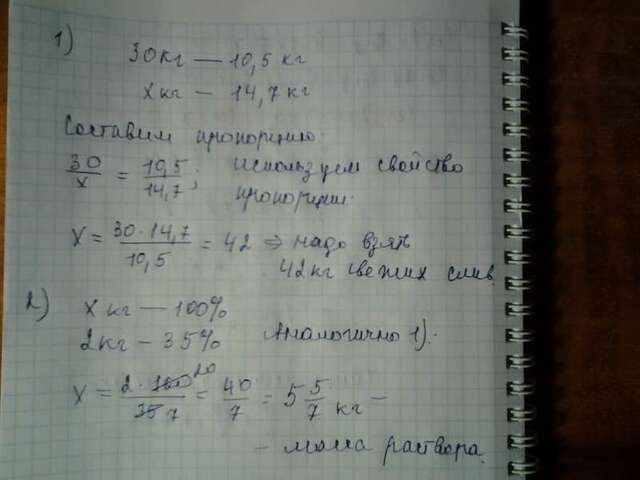 1)
30 кг — 10,5 кг
х кг — 14,7 кг
Составим пропорцию:
30/х = 10,5/14,7; используем свойство
пропорции.
х = 30·14,7/10,5 = 42 ⇒ надо взять
42 кг свежих слив.
2) х кг — 100%
2 кг — 35% Аналогично 1).
х = 2·100 20/35 7 = 40/7 = 5 5/7 кг —
— масса раствора.